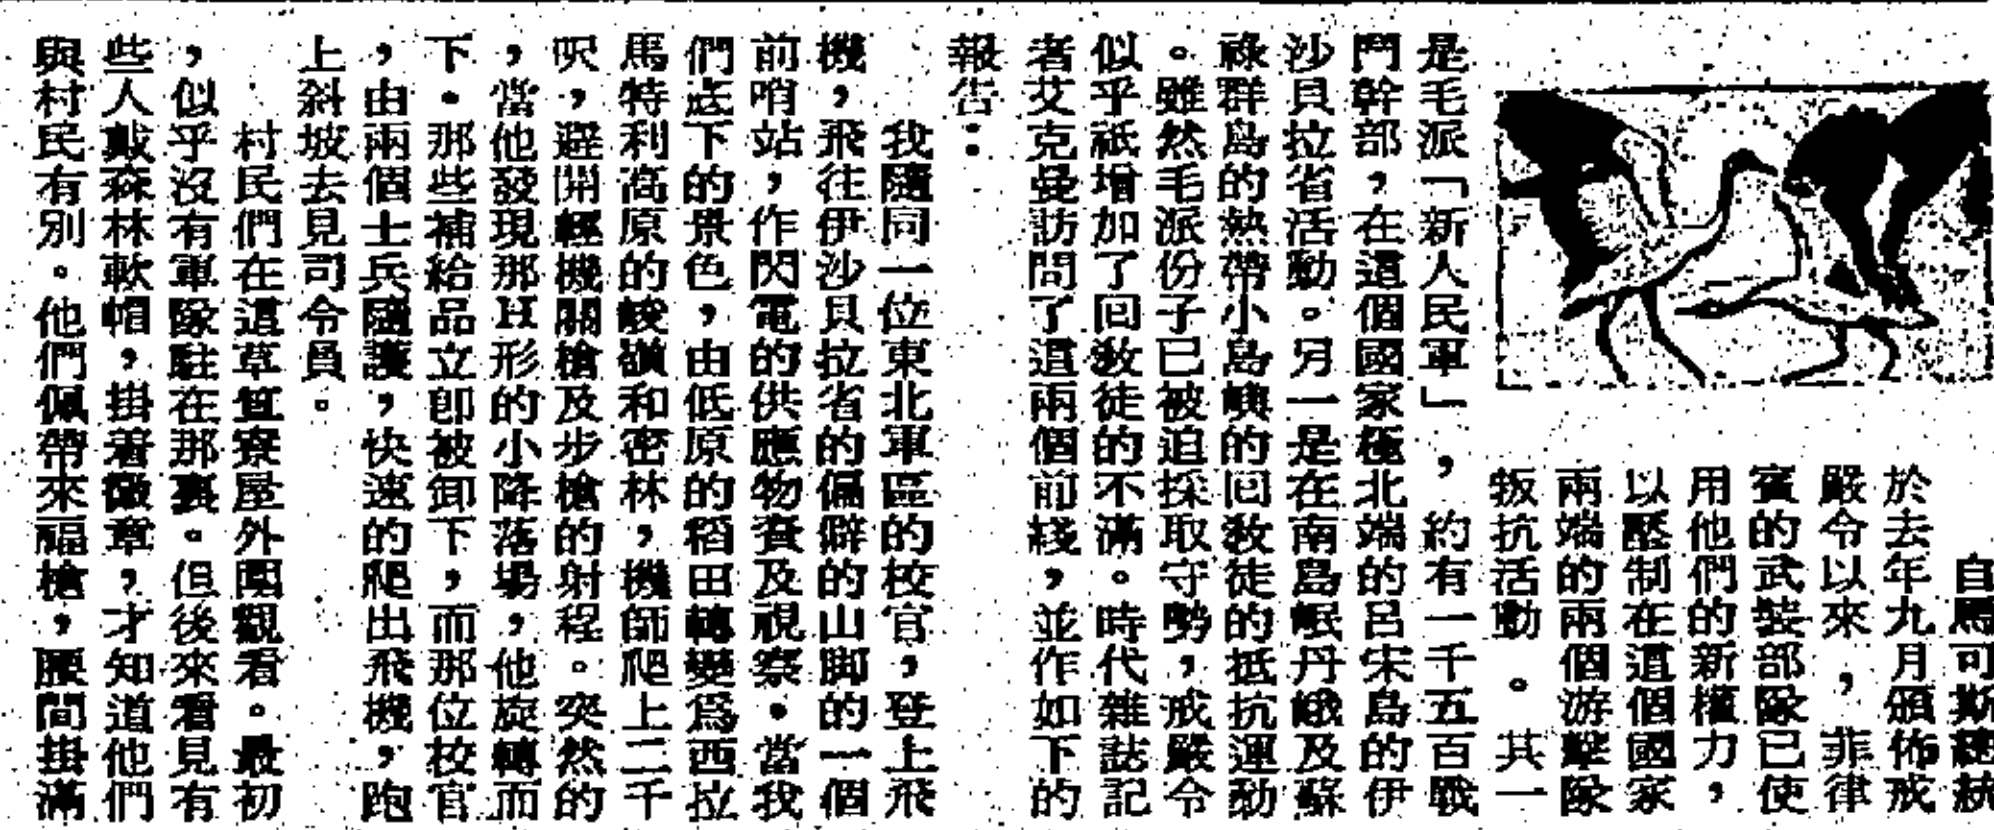 自馬可斯總統
於去年九月頒佈戒
嚴令以來，菲律
賓的武裝部隊已使
用他們的新權力，
以壓制在這個國家
兩端的兩個游擊隊
叛抗活動。其一
是毛派「新人民軍」，約有一千五百戰
鬥幹部，在這個國家極北端的呂宋島的伊
沙貝拉省活動。另一是在南島岷丹峨及蘇
祿群島的熱帶小島嶼的回教徒的抵抗運動
。雖然毛派份子已被迫採取守勢，戒嚴令
似乎祇增加了回教徒的不滿。時代雜誌記
者艾克曼訪問了這兩個前綫，並作如下的
報告：
我隨同一位東北軍區的校官，登上飛
機，飛往伊沙貝拉省的偏僻的山脚的一個
前哨站，作閃電的供應物資及視察。當我
們底下的景色，由低原的稻田轉變爲西拉
馬特利高原的峻嶺和密林，機師爬上二千
呎，避開輕機關槍及步槍的射程。突然的
，當他發現那H形的小降落場，他旋轉而
下。那些補給品立卽被卸下，而那位校官
，由兩個士兵隨護，快速的爬出飛機，跑
上斜坡去見司令員。
村民們在這草苴寮屋外圍觀看。最初
，似乎沒有軍隊駐在那裏。但後來看見有
些人戴森林軟帽，掛着徽章，才知道他們
與村民有別。他們佩帶來福槍，腰間掛滿